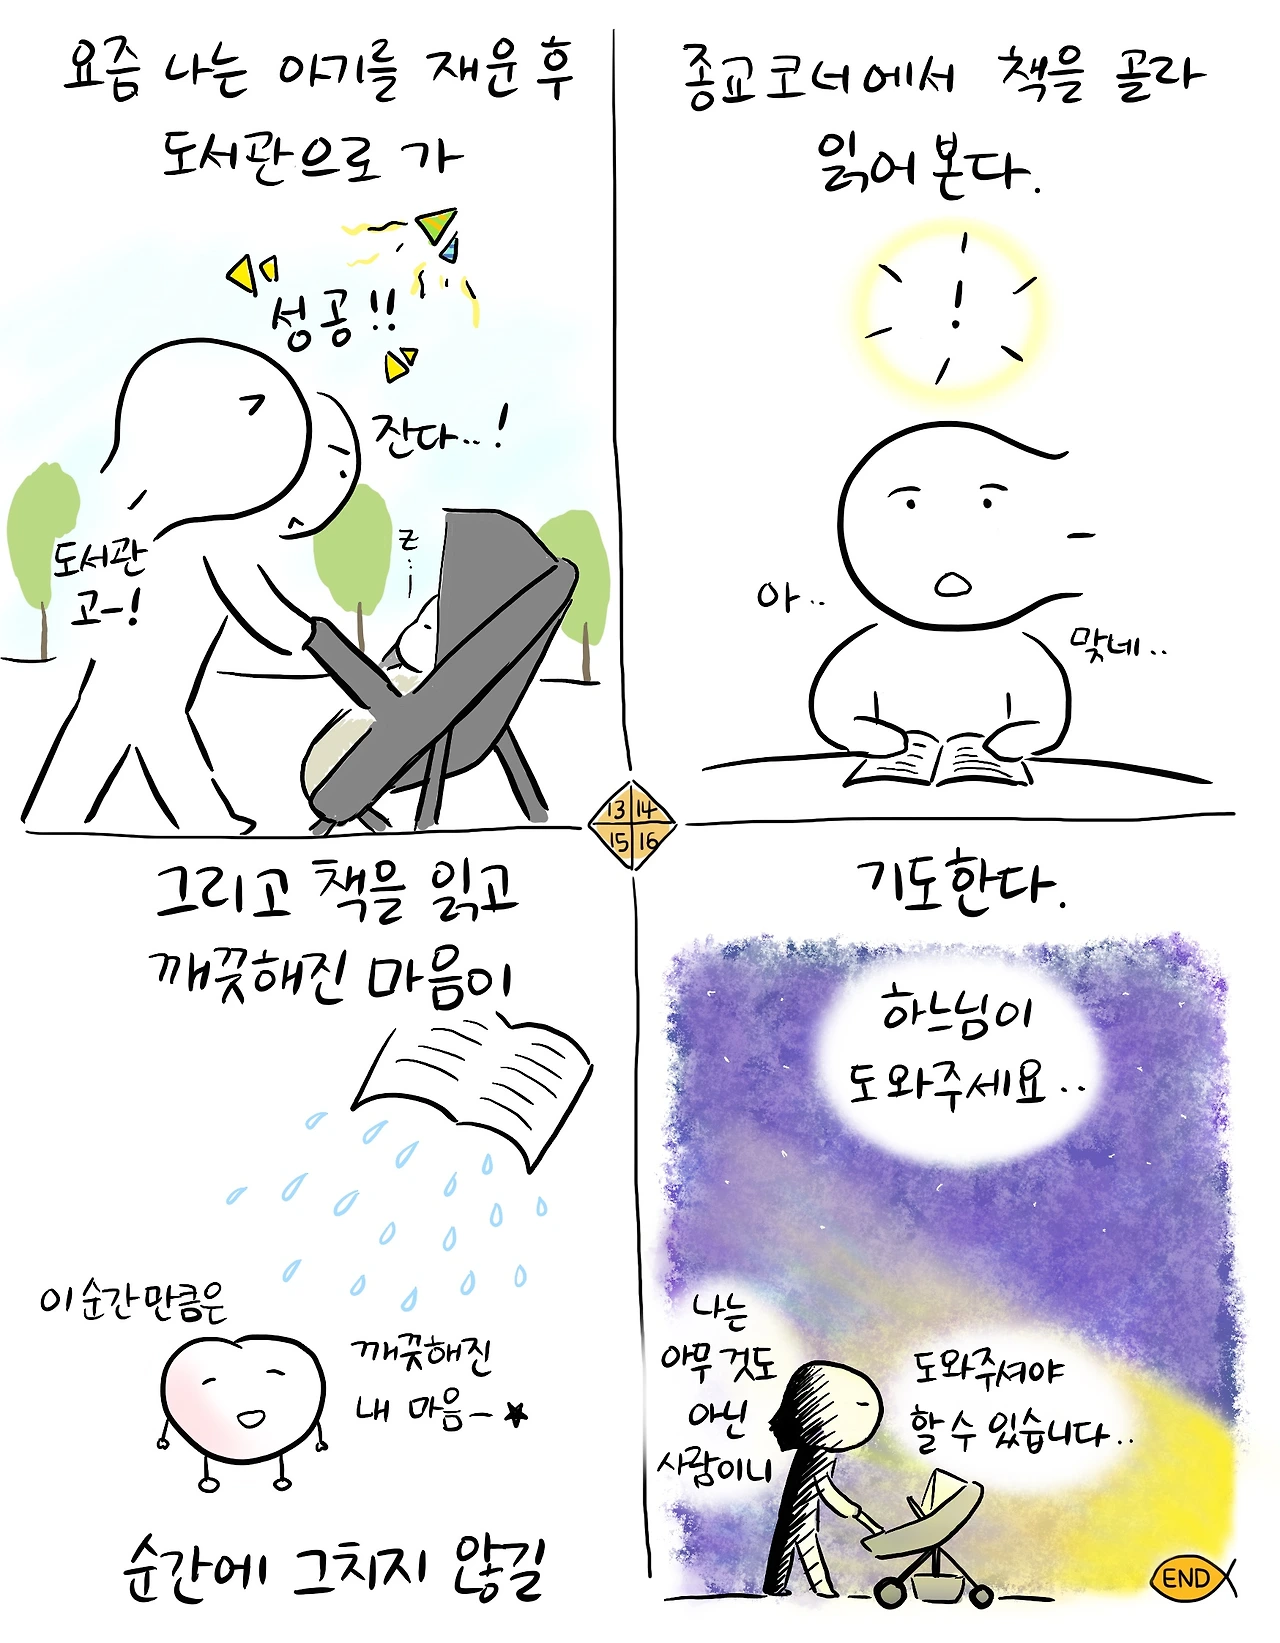 요즘 나는 아기를 재운 후
도서관으로 가
성공!!
잔다..!
z
도서관
고-!
종교 코너에서 책을 골라
읽어 본다.
!
아..
맞네..
13 14
15 16
그리고 책을 읽고
깨끗해진 마음이
이 순간만큼은
깨끗해진
내 마음-★
순간에 그치지 않길
기도한다.
하느님이
도와주세요..
나는
아무것도
아닌
사람이니
도와주셔야
할 수 있습니다..
END